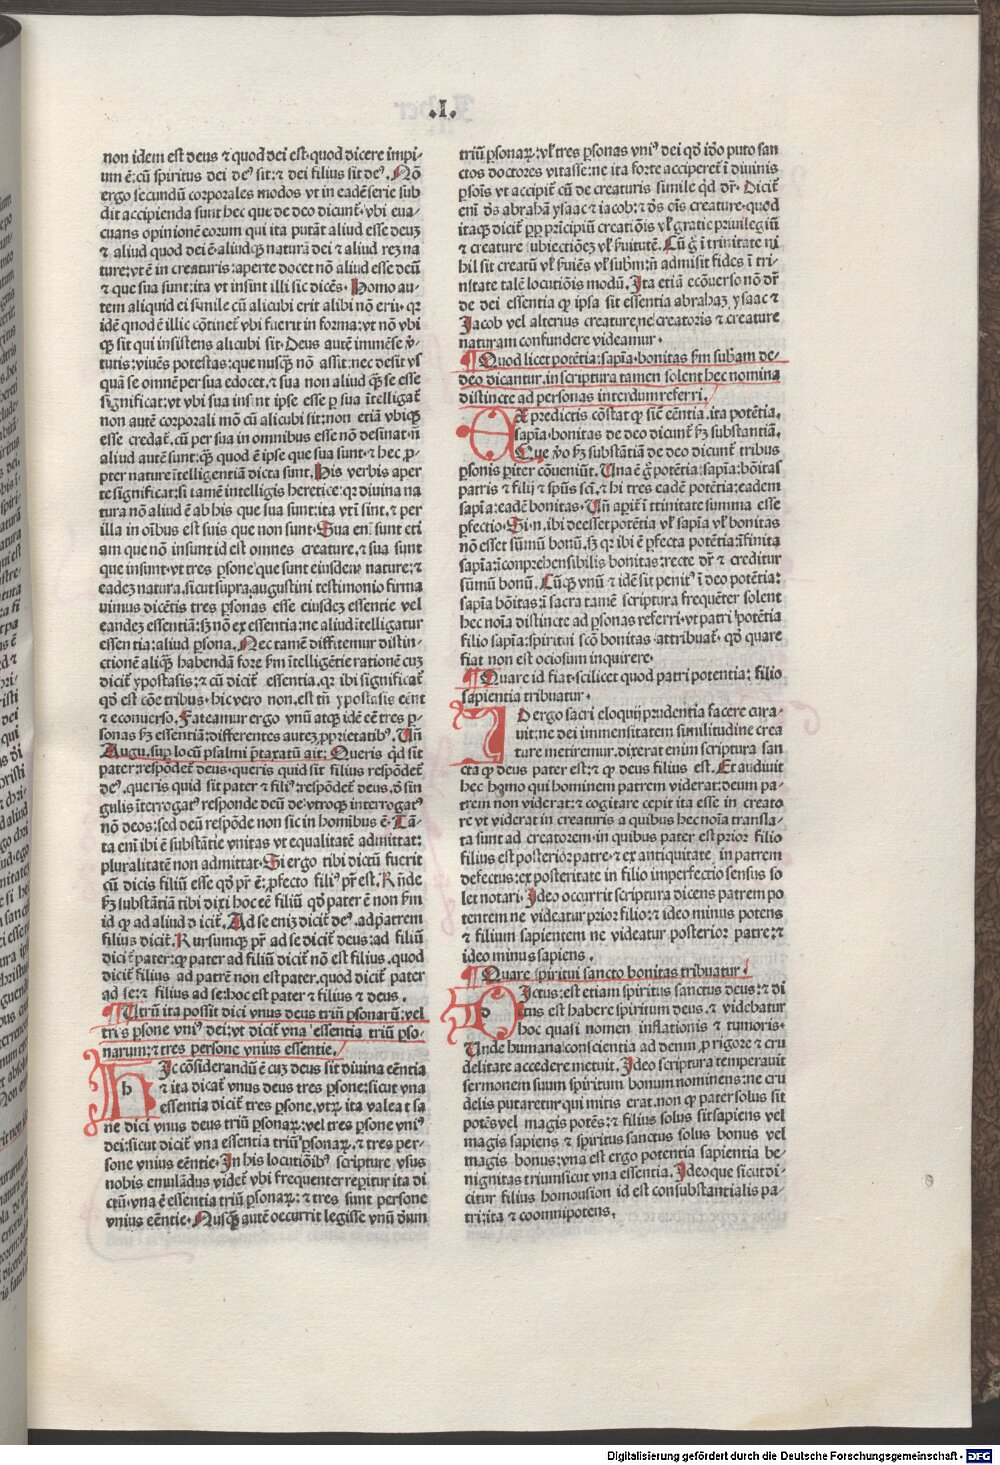 .I.
non idem est deus ⁊ quod dei est·quod dicere impi-
um ē:cū spiritus dei deꝰ sit:⁊ dei filius sit deꝰ. Nō
ergo secundū corporales modos vt in eadē serie sub
dit accipienda sunt hec que de deo dicunt̄·vbi eua-
cuans opinionē eorum qui ita putāt aliud esse deuꝫ
⁊ aliud quod dei ē·aliudqꝫ naturā dei ⁊ aliud reꝫ na
ture:vt ē in creaturis:aperte docet nō aliud esse deū
⁊ que sua sunt:ita vt insint illi sic dicēs·Homo au-
tem aliquid ei simile cū alicubi erit alibi nō erit·qꝛ
idē quod ē illic cōtinet̄ vbi fuerit in forma:vt nō vbi
qꝫ sit qui insistens alicubi sit·Deus autē immēse v̄-
tutis:viuēs potestas:que nusqꝫ nō assit:nec desit vsꝫ
quā se omnē per sua edocet.⁊ sua non aliud qꝫ se esse
significat:vt vbi sua insint ipse esse ꝑ sua ītelligat̄
non autē corporali mō cū alicubi sit:non etiā vbiqꝫ
esse credat̄.cū per sua in omnibus esse nō desinat·n̄
aliud autē sunt:qꝫ quod ē ipse que sua sunt·⁊ hec ꝓ-
pter nature ītelligentiā dicta sunt.His verbis aper
te significat̄:si tamē intelligis heretice:qꝛ diuina na
tura nō aliud ē ab his que sua sunt:ita vt ī sint.⁊ per
illa in oībus est suis que non sunt·Sua eni sunt eti
am que nō insunt id est omnes creature.⁊ sua sunt
que insunt·vt tres ꝑsone que sunt eiusdem nature:⁊
eadeꝫ natura.sicut supra.augustini testimonio firma
uimus dicētis tres ꝑsonas esse eiusdeꝫ essentie vel
eandeꝫ essentiā:sꝫ nō ex essentia:ne aliud ītelligatur
essentia:aliud ꝑsona.Nec tamē diffitemur distin-
ctionē aliqꝫ habendā fore ẜm ītelligētie rationē cuꝫ
dicit̄ ypostasis:⁊ cū dicit̄ essentia.qꝛ ibi significat̄
qḋ est cōe tribus·hic vero non.est tn̄ ypostasis eent̄
⁊ econuerso.Fateamur ergo vnū atqꝫ idē eē tres ꝑ-
sonas ẜꝫ essentiā:differentes auteꝫ ꝓprietatibꝰ.Vn̄
Augu.sup locū psalmi p̄taxatū ait.Queris qḋ sit
pater:respōdet̄ deus·queris quid sit filius respōdet̄
deꝰ.queris quid sit pater ⁊ filiꝰ:respōdet̄ deus.ḋ sin
gulis īterrogatꝰ responde deū deꝰ·vtroqꝫ interrogatꝰ
nō deos:sed deū respōde non sic in homībus ē·Tā-
ta eni ibi ē substātie vnitas vt equalitatē admittat:
pluralitatē non admittat·Si ergo tibi dictū fuerit
cū dicis filiū esse qḋ pr̄ ē:ꝓfecto filiꝰ pr̄ est.Rn̄de
ẜꝫ substātiā tibi dixi hoc eē filiū qḋ pater ē non ẜm
id qꝫ ad aliud dicit̄.Ad se eniꝫ dicit̄ deꝰ.ad patrem
filius dicit̄.Rursumqꝫ pr̄ ad se dicit̄ deus:ad filiū
dicit̄ pater:qꝫ pater ad filiū dicit̄ nō est filius.quod
dicit̄ filius ad patrē non est pater.quod dicit̄ pater
ad se:⁊ filius ad se:hoc est pater ⁊ filius ⁊ deus.
¶ Utrū ita possit dici vnus deus triū ꝑsonarū:vel
tres ꝑsone vniꝰ dei:vt dicit̄ vna essentia triū ꝑso-
narum:⁊ tres persone vnius essentie.
h Ic cōsiderandū ē cuꝫ deus sit diuina eēntia
⁊ ita dicat̄ vnus deus tres ꝑsone:sicut vna
essentia dicit̄ tres ꝑsone.vtꝝ ita valeat sa
ne dici vnus deus triū ꝑsonaꝝ:vel tres ꝑsone vniꝰ
dei:sicut dicit̄ vna essentia triū ꝑsonaꝝ.⁊ tres per-
sone vnius eēntie·In his locutiōibꝰ scripture vsus
nobis emulādus videt̄ vbi frequenter reꝑitur ita di
ctū·vna ē essentia triū ꝑsonaꝝ:⁊ tres sunt persone
vnius eēntie·Nusqꝫ autē occurrit legisse vnū ḋum
triū ꝑsonaꝝ:vł tres ꝑsonas vniꝰ dei qḋ iḋo puto san
ctos doctores vitasse:ne ita forte acciperet̄ ī diuinis
ꝑsōis vt accipit̄ cū de creaturis simile qḋ dr̄·Dicit̄
eni ḋs abrahā ysaac ⁊ iacob:⁊ ḋs oīs creature·quod
itaqꝫ dicit̄ ꝓp prīcipiū creatiōis vł gratie priuilegiū
⁊ creature subiectiōeꝫ vł ẜuitutē.Cū gͦ ī trinitate ni
hil sit creatū vł ẜuiēs vł subm:n̄ admisit fides ī tri-
nitate talē locutiōis modū.Ita etiā ecōuerso nō dr̄
de dei essentia qꝫ ipsa sit essentia abrahaꝫ ysaac ⁊
Jacob vel alterius creature.ne creatoris ⁊ creature
naturam confundere videamur·
¶ Quod licet potētia:sapīa·bonitas ẜm subām de-
deo dicantur.in scriptura tamen solent hec nomina
distincte ad personas interdum referri.
Ex predictis cōstat qꝫ sic̄ eēntia.ita potētia.
sapīa·bonitas de deo dicunt̄ ẜꝫ substantiā.
Que v̄o ẜꝫ substātiā de deo dicunt̄ tribus
ꝑsonis ꝑiter cōueniūt.Una ē gͦ potētia:sapīa:bōitas
patris ⁊ filij ⁊ spūs scī.⁊ hi tres eadē potētia:eadem
sapīa:eadē bonitas·Vn̄ aꝑit̄ ī trinitate summa esse
ꝑfectio·Si.n.ibi deesset potētia vł sapīa vł bonitas
nō esset sūmū bonū.sꝫ qꝛ ibi ē ꝑfecta potētia:īfinita
sapīa:īcomprehensibilis bonitas:recte dr̄ ⁊ creditur
sūmū bonū.Cūqꝫ vnū ⁊ idē sit penitꝰ ī deo potētia:
sapīa bōitas:ī sacra tamē scriptura frequēter solent
hec noīa distincte ad personas referri·vt patri potētia
filio sapīa:spiritui scō bonitas attribuat̄·qḋ quare
fiat non est ociosum inquirere·
¶ Quare id fiat·scilicet quod patri potentia: filio
sapientia tribuatur·
ID ergo sacri eloquij prudentia facere cura-
uit:ne dei immensitatem similitudine crea
ture metiremur.dixerat enim scriptura san
cta qꝫ deus pater est:⁊ qꝫ deus filius est.Et audiuit
hec homo qui hominem patrem viderat:deum pa-
trem non viderat:⁊ cogitare cepit ita esse in creato
re vt viderat in creaturis a quibus hec noīa transla-
ta sunt ad creatorem·in quibus pater est prior filio
filius est posterior patre·⁊ ex antiquitate in patrem
defectus:ex posteritate in filio imperfectio sensus so
let notari·Ideo occurrit scriptura dicens patrem po
tentem ne videatur prior filio:⁊ ideo minus potens
⁊ filium sapientem ne videatur posterior patre:⁊
ideo minus sapiens.
¶ Quare spiritui sancto bonitas tribuatur·
d Ictus:est etiam spiritus sanctus deus:⁊ di
ctus est habere spiritum deus.⁊ videbatur
hoc quasi nomen inflationis ⁊ tumoris·
Unde humana conscientia ad deum ꝓ rigore ⁊ cru
delitate accedere metuit.Ideo scriptura temperauit
sermonem suum spiritum bonum nominens:ne cru
delis putaretur qui mitis erat.non qꝫ pater solus sit
potēs vel magis potēs:⁊ filius solus sit sapiens vel
magis sapiens ⁊ spiritus sanctus solus bonus vel
magis bonus:vna est ergo potentia sapientia be-
nignitas trium sicut vna essentia.Ideoque sicut di-
citur filius homousion id est consubstantialis pa-
tri:ita ⁊ coomnipotens.
Digitalisierung gefördert durch die Deutsche Forschungsgemeinschaft · DFG